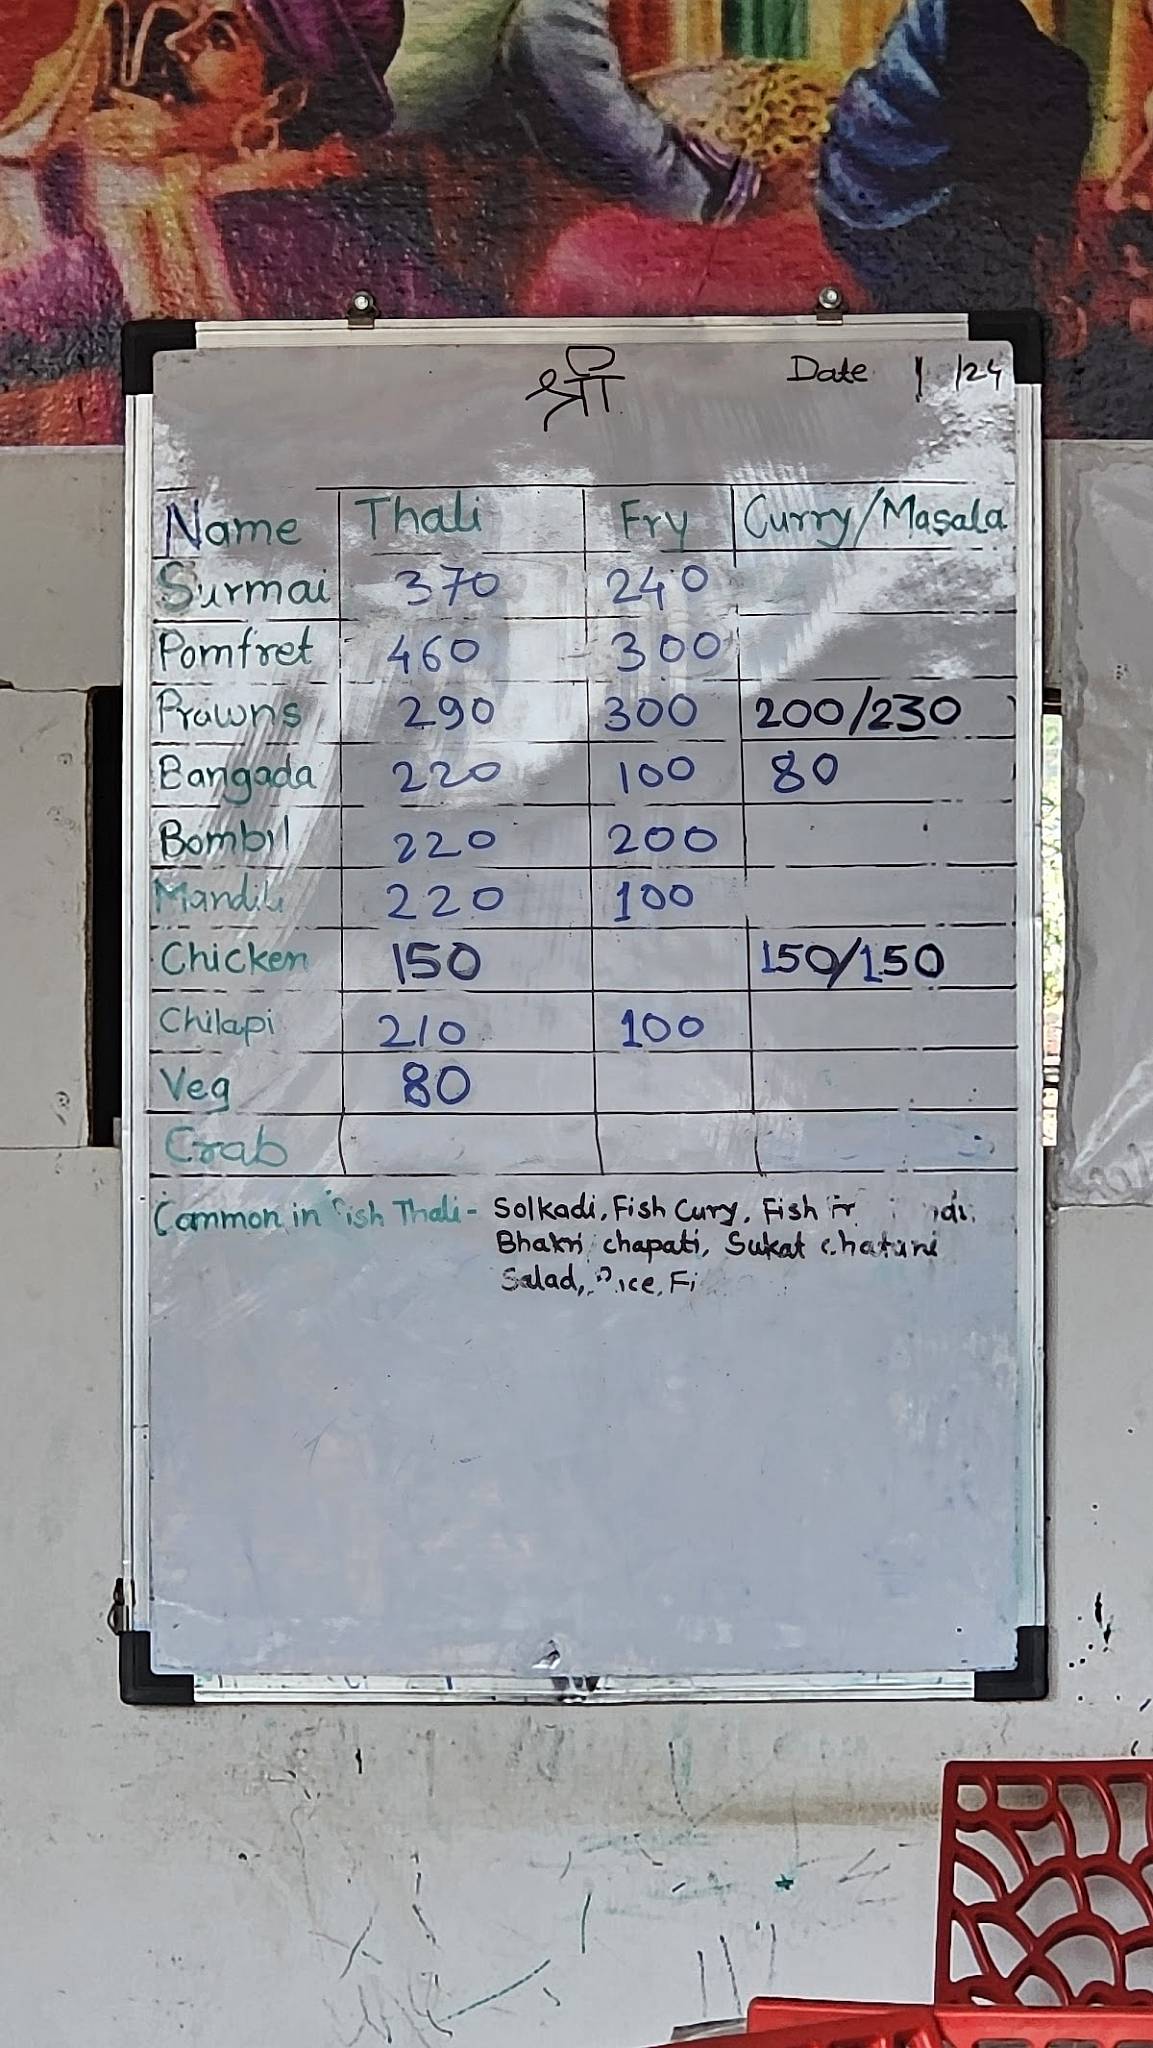 श्री
Date / /24
Name Thali Fry Curry/Masala
Surmai 370 240
Pomfret 460 300
Prawns 290 300 200/230
Bangada 220 100 80
Bombil 220 200
Mandili 220 100
Chicken 150 150/150
Chilapi 210 100
Veg 80
Crab
Common in fish Thali - Solkadi, Fish Cury, Fish
Bhakri, chapati, Sukat chatani
Salad, Rice,